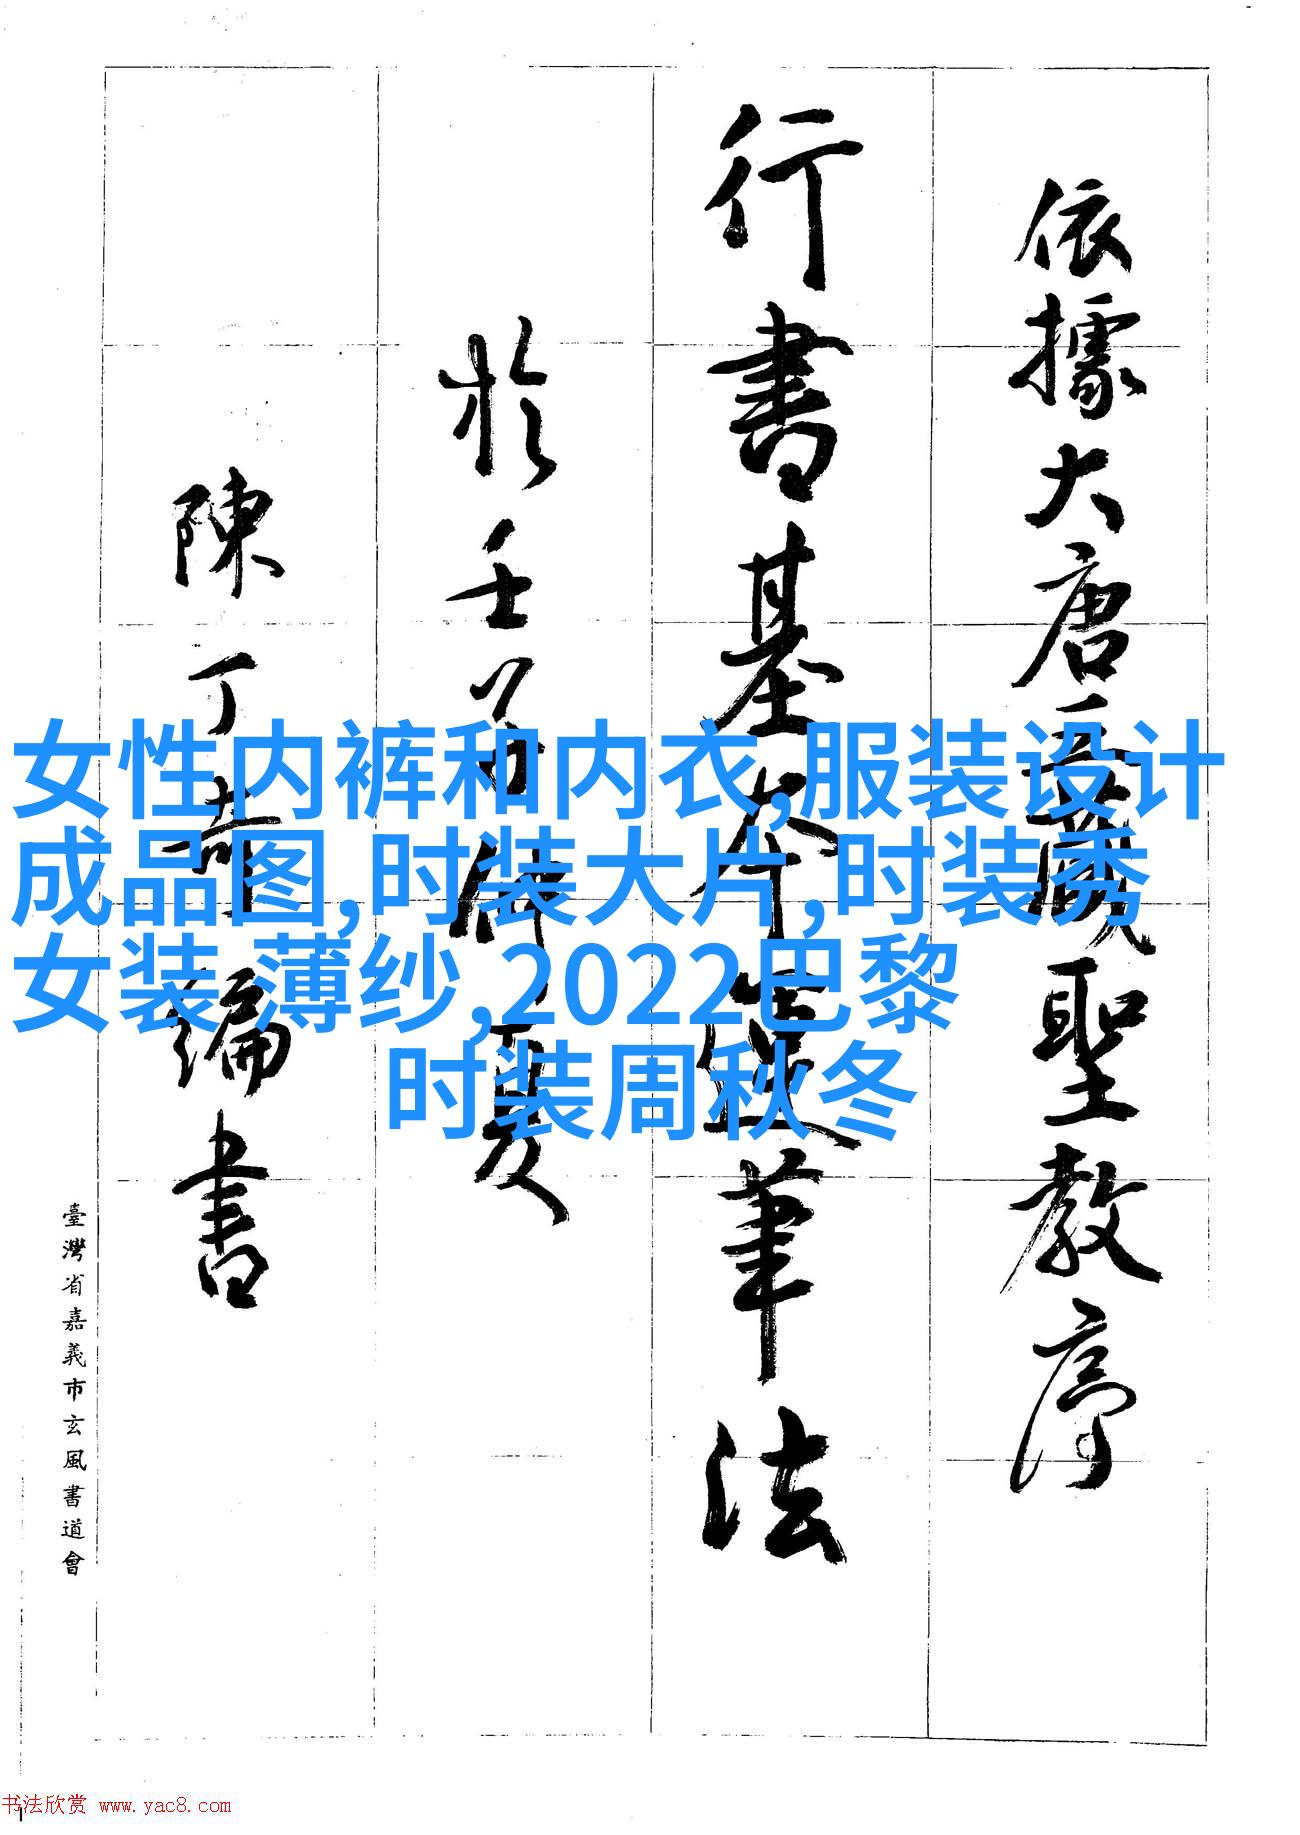 依據大唐三藏聖教序
行書基本運筆法
於壬仲夏
陳丁奇編書
臺灣省嘉義市玄風書道會
女性内裤和内衣,服装设计
成品图,时装大片,时装秀
女装 薄纱,2022巴黎
时装周秋冬
书法欣赏 www.yac8.com